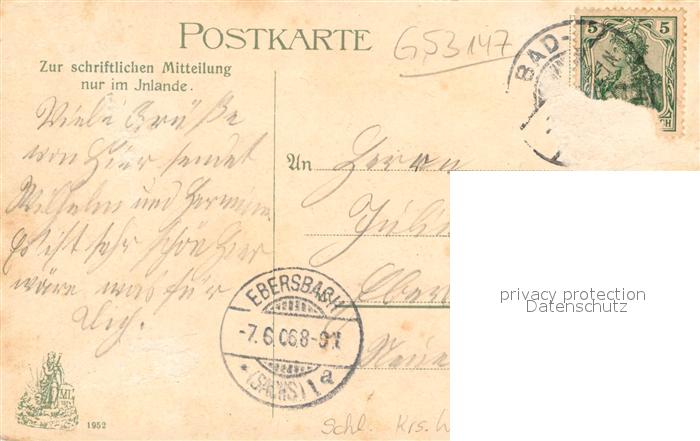 POSTKARTE
G53147
Zur schriftlichen Mitteilung
nur im Jnlande.
5 5
BAD-
Viele Grüße
von hier sendet
Wilhelm und Hermine
Es ist sehr schön hier
wäre was für
Dich.
An Herrn
EBERSBACH
-7.6.06.8-9V.
(SACHS) 1a
privacy protection
Datenschutz
Schl. Krs.
ML
1952